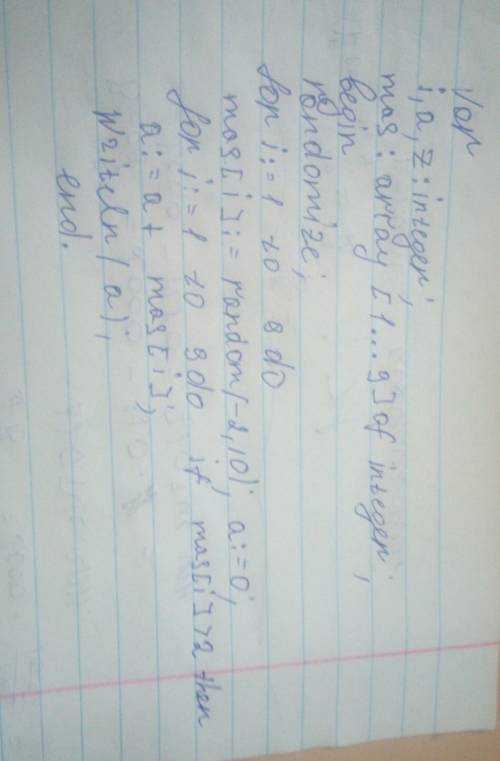 Var
i, a, z: integer;
mas: array [1...9] of integer;
begin
randomize;
for i:=1 to 9 do
mas[i]:= random(-2,10); a:=0;
for i:=1 to 9 do if mas[i]>2 then
a:=a+ mas[i];
Writeln(a);
end.